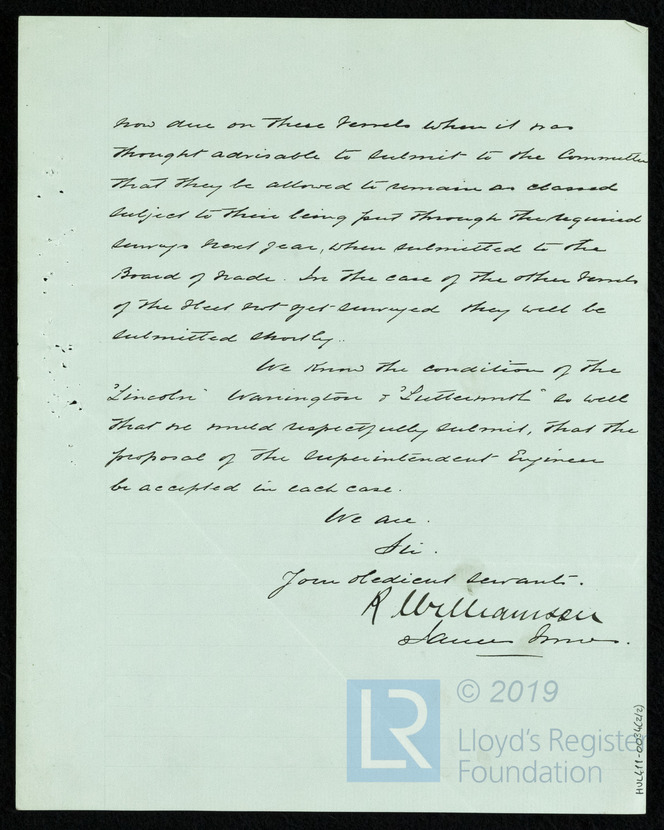 now due on these vessels when it was
thought advisable to submit to the Committee
that they be allowed to remain as classed
subject to their being put through the required
surveys next year, when submitted to the
Board of Trade. In the case of the other vessels
of the fleet not yet surveyed they will be
submitted shortly.
We know the condition of the
"Lincoln" Warrington & "Lutterworth" so well
that we would respectfully submit, that the
proposal of the Superintendent Engineer
be accepted in each case.
We are.
Sir.
Your obedient servants.
R Williamson
James
© 2019
LR
Lloyd's Register
Foundation
HUL411-0034(2/2)